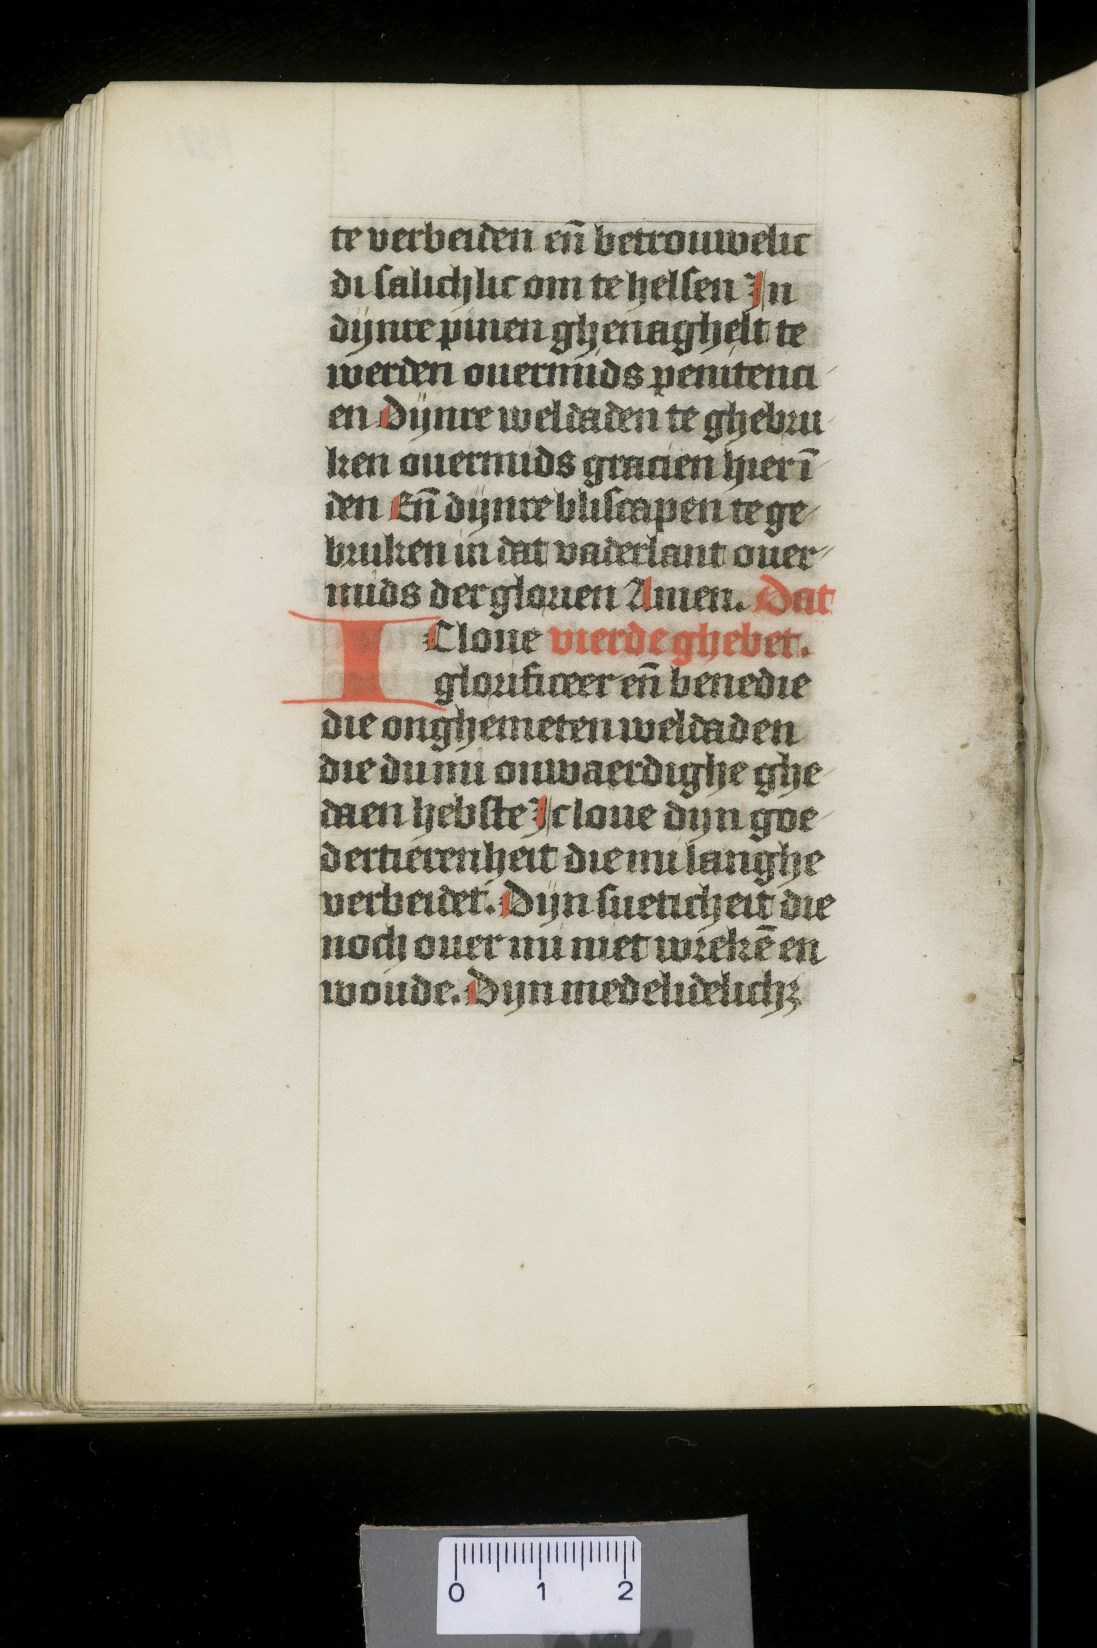 te verbeiden en̄ betrouwelic
di salichlic om te helsen In
dijnre pinen ghenaghelt te
werden ouermids penitenci
en Dijnre weldaden te ghebru
ken ouermids gracien hier ī
den En̄ dijnre bliscapen te ge
bruken in dat vaderlant ouer
mids der glorien Amen. Dat
ICloue vierde ghebet.
glorificeer en̄ benedie
die onghemeten weldaden
die du mi onwaerdighe ghe
daen hebste Ic loue dijn goe
dertierenheit die mi langhe
verbeidet. Dijn sueticheit die
noch ouer mi niet wrekē en
woude. Dijn medelidelichꝫ
0 1 2